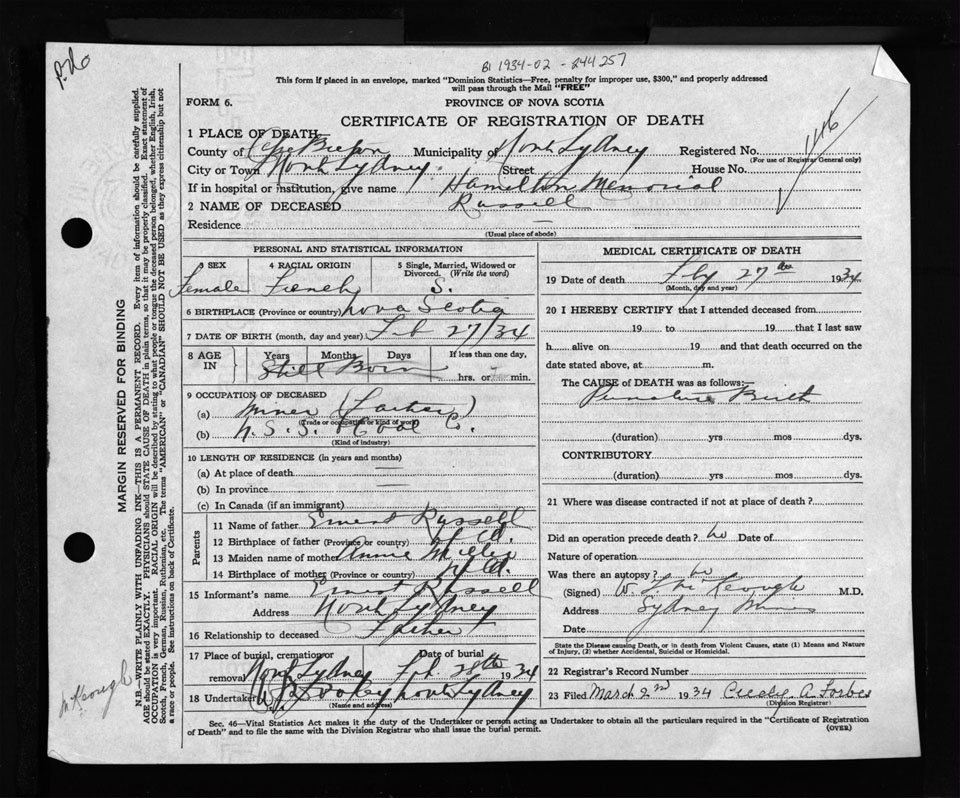 P.No
BI 1934-02-244257
This form if placed in an envelope, marked "Dominion Statistics—Free, penalty for improper use, $300," and properly addressed
will pass through the Mail "FREE"
FORM 6.
PROVINCE OF NOVA SCOTIA
CERTIFICATE OF REGISTRATION OF DEATH
146
1 PLACE OF DEATH—
County of Cape Breton Municipality of North Sydney Registered No.
(For use of Registrar General only)
City or Town North Sydney. Street House No.
If in hospital or institution, give name Hamilton Memorial
2 NAME OF DECEASED Russell
Residence —
(Usual place of abode)
PERSONAL AND STATISTICAL INFORMATION
3 SEX 4 RACIAL ORIGIN 5 Single, Married, Widowed or Divorced. (Write the word)
Female French S.
6 BIRTHPLACE (Province or country) Nova Scotia
7 DATE OF BIRTH (month, day and year) Feb 27/34
8 AGE IN Years Months Days If less than one day,
Still Born hrs. or min.
9 OCCUPATION OF DECEASED
(a) Miner (Father)
(Trade or occupation or kind of work)
(b) N.S.S. & Coal Co.
(Kind of industry)
10 LENGTH OF RESIDENCE (in years and months)
(a) At place of death —
(b) In province —
(c) In Canada (if an immigrant)
Parents
11 Name of father Ernest Russell
12 Birthplace of father (Province or country) Nfld.
13 Maiden name of mother Annie
14 Birthplace of mother (Province or country) Nfld.
15 Informant's name Ernest Russell
Address North Sydney
16 Relationship to deceased Father
17 Place of burial, cremation or removal Date of burial
North Sydney Feb 28th 1934
18 Undertaker North Sydney
(Name and address)
MEDICAL CERTIFICATE OF DEATH
19 Date of death Feby 27th 1934
(Month, day and year)
20 I HEREBY CERTIFY that I attended deceased from
19 to 19 that I last saw
h alive on 19 and that death occurred on the
date stated above, at m.
The CAUSE of DEATH was as follows:—
Premature Birth
(duration) yrs mos dys.
CONTRIBUTORY
(duration) yrs mos dys.
21 Where was disease contracted if not at place of death?
Did an operation precede death? No Date of
Nature of operation
Was there an autopsy? No
(Signed) Keough M.D.
Address Sydney Mines
Date
State the Disease causing Death, or in death from Violent Causes, state (1) Means and Nature
of Injury, (2) whether Accidental, Suicidal or Homicidal.
22 Registrar's Record Number
23 Filed March 2nd 1934 A Forbes
(Division Registrar)
Sec. 46—Vital Statistics Act makes it the duty of the Undertaker or person acting as Undertaker to obtain all the particulars required in the "Certificate of Registration
of Death" and to file the same with the Division Registrar who shall issue the burial permit.
(OVER)
MARGIN RESERVED FOR BINDING
N.B.—WRITE PLAINLY WITH UNFADING INK—THIS IS A PERMANENT RECORD. Every item of information should be carefully supplied.
AGE should be stated EXACTLY. PHYSICIANS should STATE CAUSE OF DEATH in plain terms, so that it may be properly classified. Exact statement of
OCCUPATION is very important. RACIAL ORIGIN will be described by stating to what people or tongue the deceased person belonged, whether English, Irish,
Scotch, French, German, Russian, Ruthenian, etc. The terms "AMERICAN" or "CANADIAN" SHOULD NOT BE USED as they express citizenship but not
a race or people. See instructions on back of Certificate.
McKeough